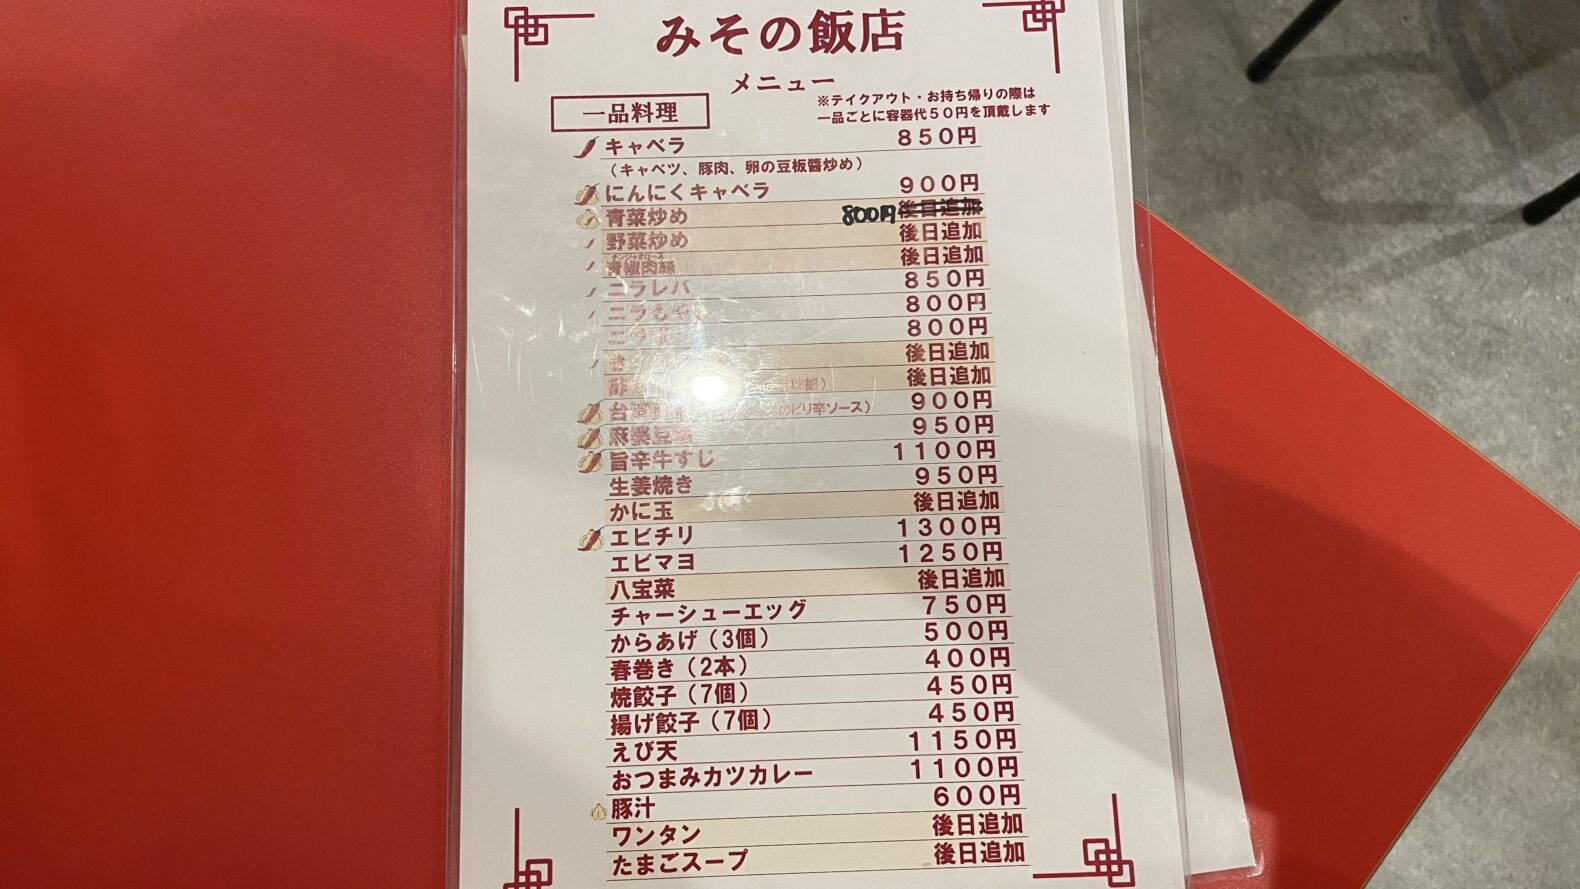 みその飯店
メニュー
一品料理
※テイクアウト・お持ち帰りの際は
一品ごとに容器代50円を頂戴します
キャベラ 850円
(キャベツ、豚肉、卵の豆板醬炒め)
にんにくキャベラ 900円
青菜炒め 800円 後日追加
野菜炒め 後日追加
チンジャオロース
青椒肉絲 後日追加
ニラレバ 850円
ニラもやし 800円
ニラ玉 800円
後日追加
後日追加
台湾 のピリ辛ソース) 900円
麻婆豆腐 950円
旨辛牛すじ 1100円
生姜焼き 950円
かに玉 後日追加
エビチリ 1300円
エビマヨ 1250円
八宝菜 後日追加
チャーシューエッグ 750円
からあげ(3個) 500円
春巻き(2本) 400円
焼餃子(7個) 450円
揚げ餃子(7個) 450円
えび天 1150円
おつまみカツカレー 1100円
豚汁 600円
ワンタン 後日追加
たまごスープ 後日追加